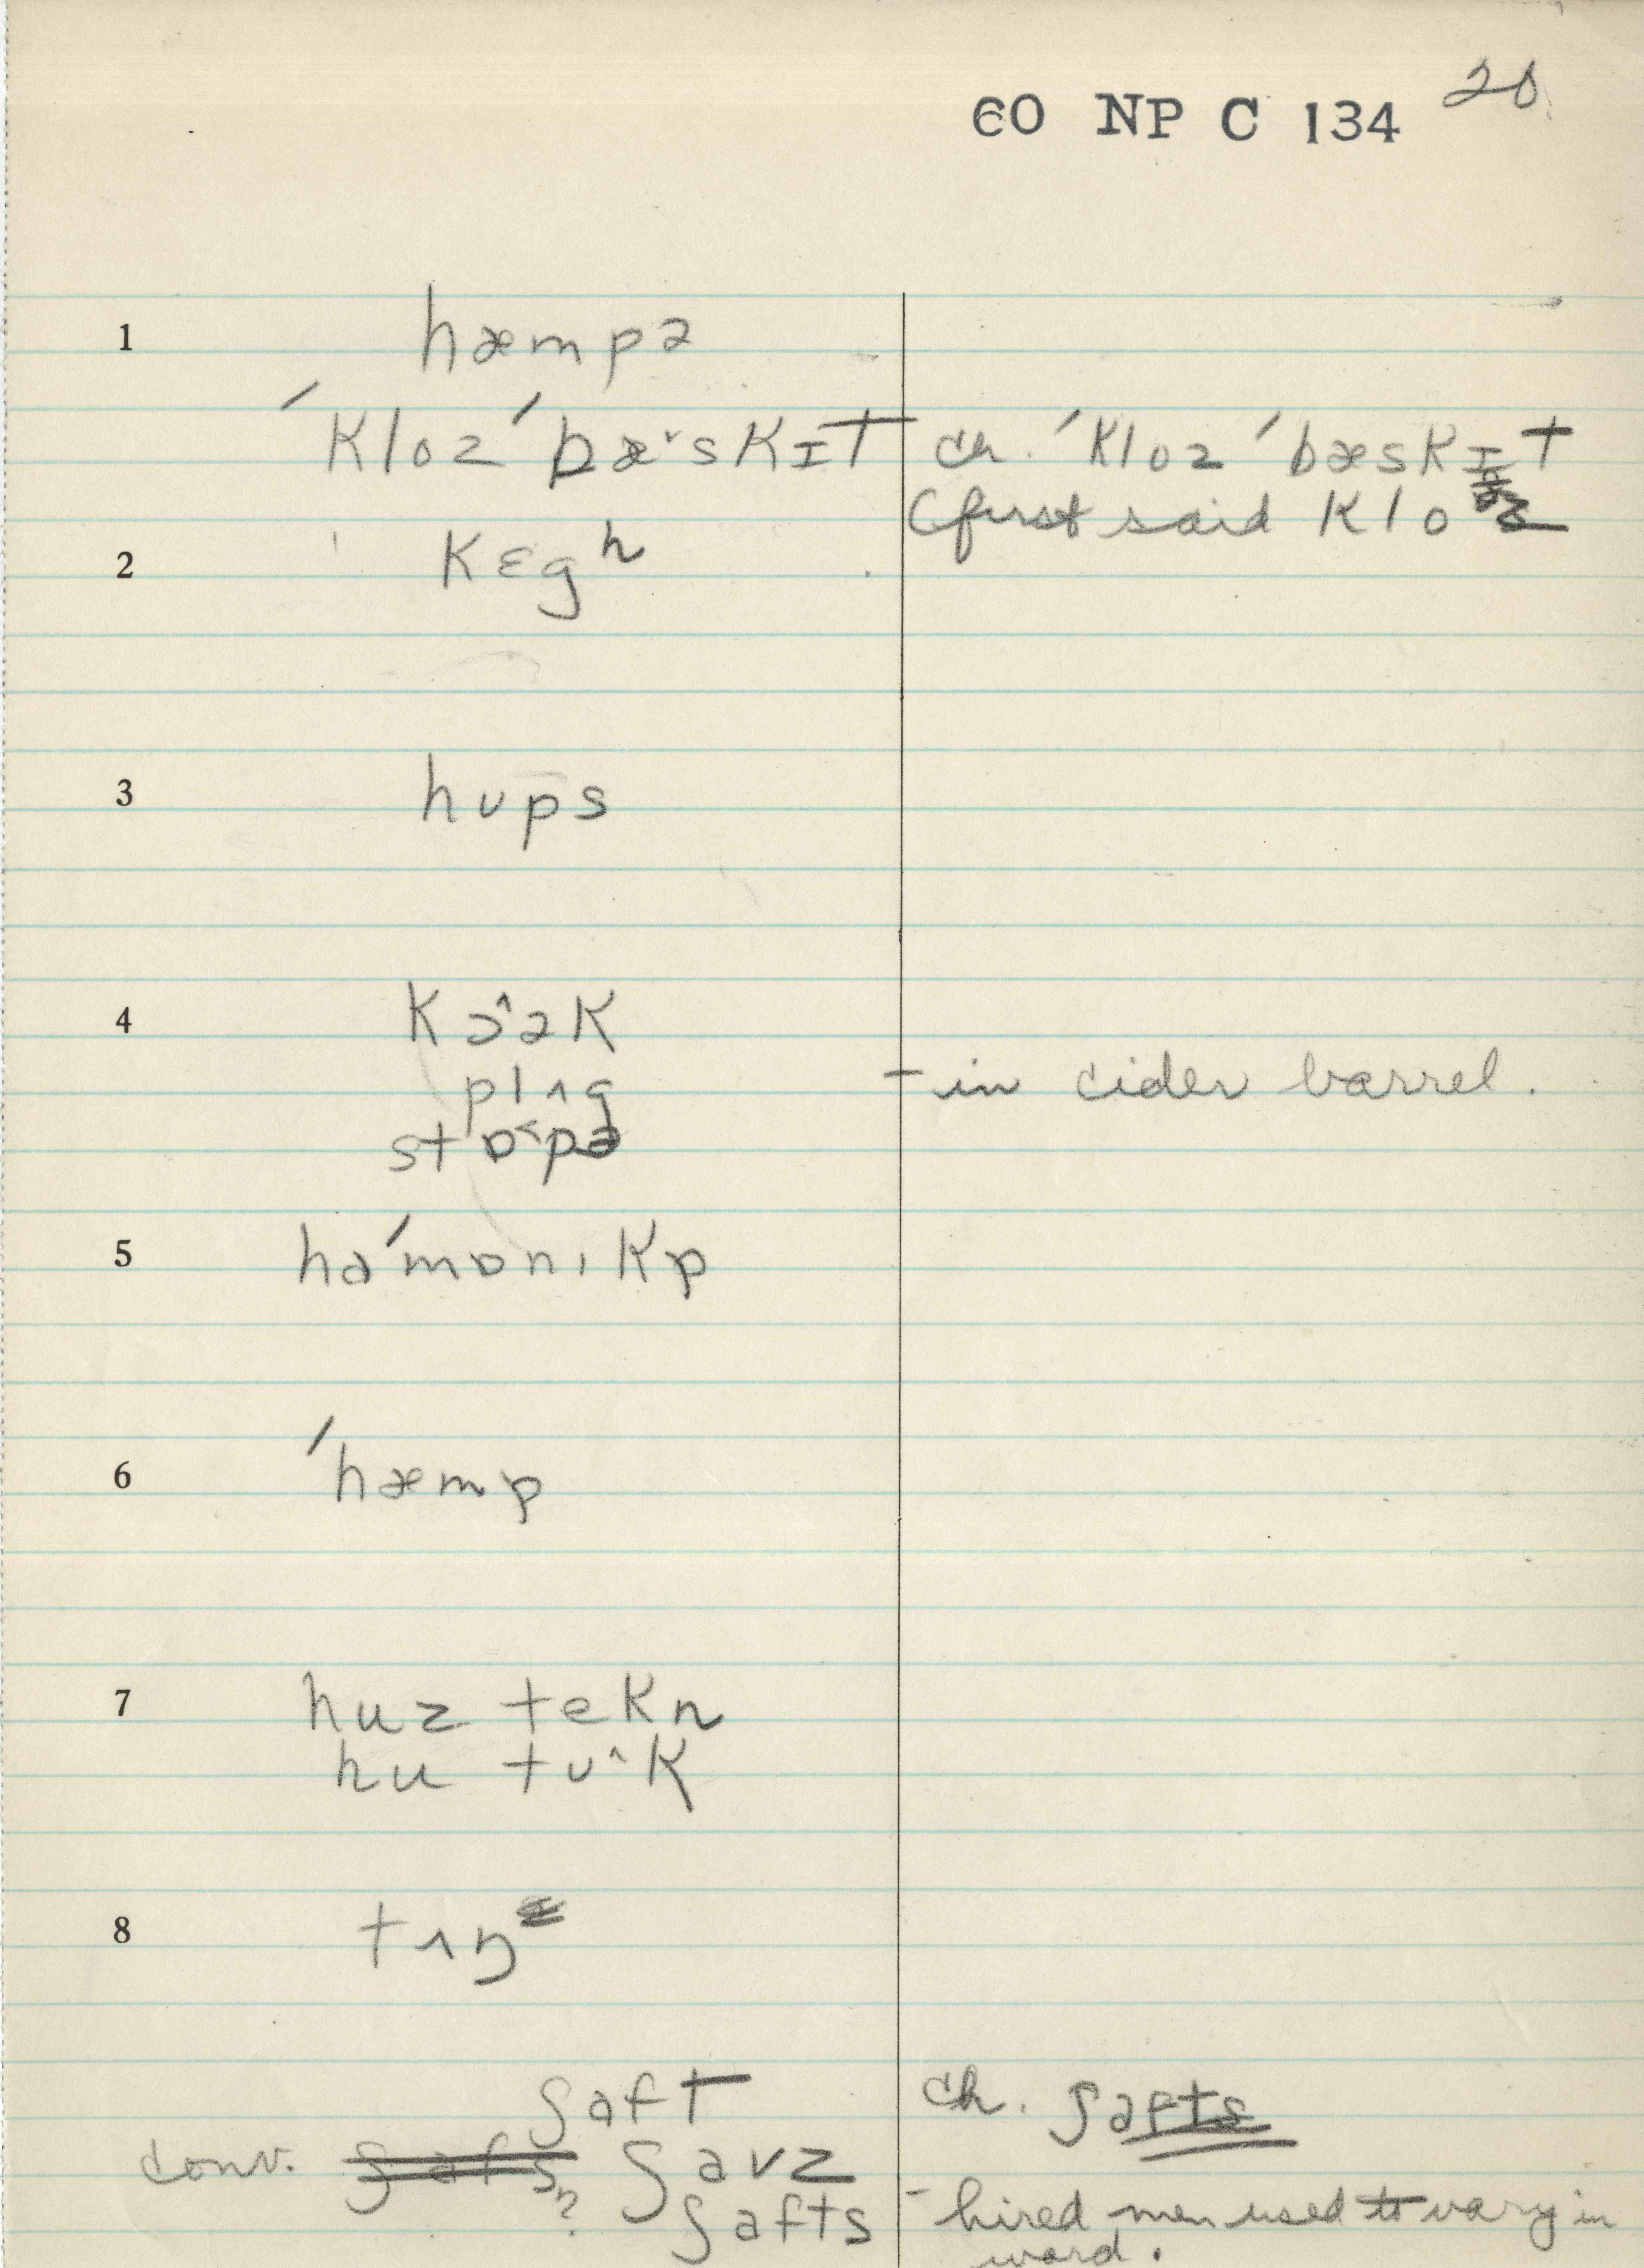 60 NP C 134 20
1 hæmpə
ˊKloz ˊbæ˅sKɪt ch. ˊKloz ˊbæsKɪt
(first said Klo z
2 Kɛgʰ
3 hʊps
4 Kɔ^əK
plʌg – in cider barrel.
stɒ˂pə
5 haˊmɒnɪKɒ
6 ˊhæmɒ
7 huz teKn
hu tʊ^K
8 tʌŋ
ʃaft ch. ʃafts
conv. ʃafs? ʃavz
ʃafts - hired men used to vary in
word.